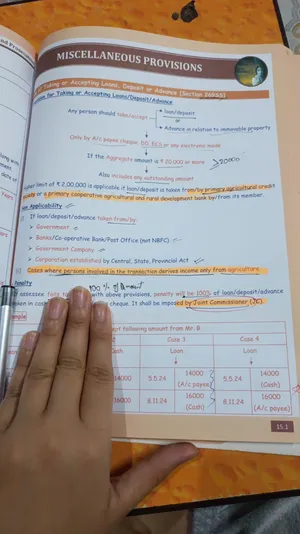 MISCELLANEOUS PROVISIONS
Taking or Accepting Loans, Deposit or Advance (Section 269SS)
for Taking or Accepting Loans/Deposit/Advance
Any person should take/accept
loan/deposit
or
Advance in relation to immovable property
Only by A/c payee cheque, DD, ECS or any electronic mode
If the Aggregate amount is ₹ 20,000 or more
≥20000
Also includes any outstanding amount
Higher limit of ₹ 2,00,000 is applicable if loan/deposit is taken from/by primary agricultural credit
or a primary cooperative agricultural and rural development bank by/from its member.
Non Applicability
If loan/deposit/advance taken from/by:
> Government
> Banks/Co-operative Bank/Post Office (not NBFC)
> Government Company
> Corporation established by Central, State, Provincial Act
(ii) Cases where persons involved in the transaction derives income only from agriculture
Penalty
100 % of Amount
assessee fails to with above provisions, penalty will be 100% of loan/deposit/advance
taken in cash cheque. It shall be imposed by Joint Commissioner (JC).
following amount from Mr. B
Case 3
Case 4
Cash
Loan
Loan
14000
5.5.24
14000
(A/c payee)
5.5.24
14000
(Cash)
16000
8.11.24
16000
(Cash)
8.11.24
16000
(A/c payee)
15.1